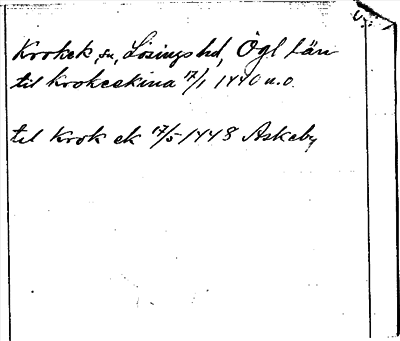 Krokek, sn, Lösings hd, Ögl län
til krokeekina 17/1 1440 u.o.
til Krok ek 17/5 1448 Askeby